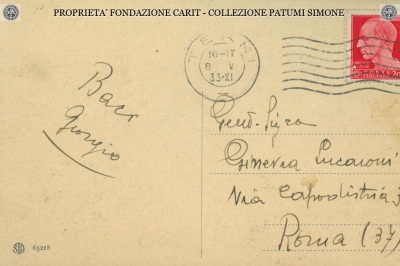 PROPRIETA' FONDAZIONE CARIT - COLLEZIONE PATUMI SIMONE
TERNI
16-17
8 V
33·XI
Baci
Giorgio
Gent. Sig.ra
Ginevra Lucaroni
Via Capodistria 3
Roma (37)
65218